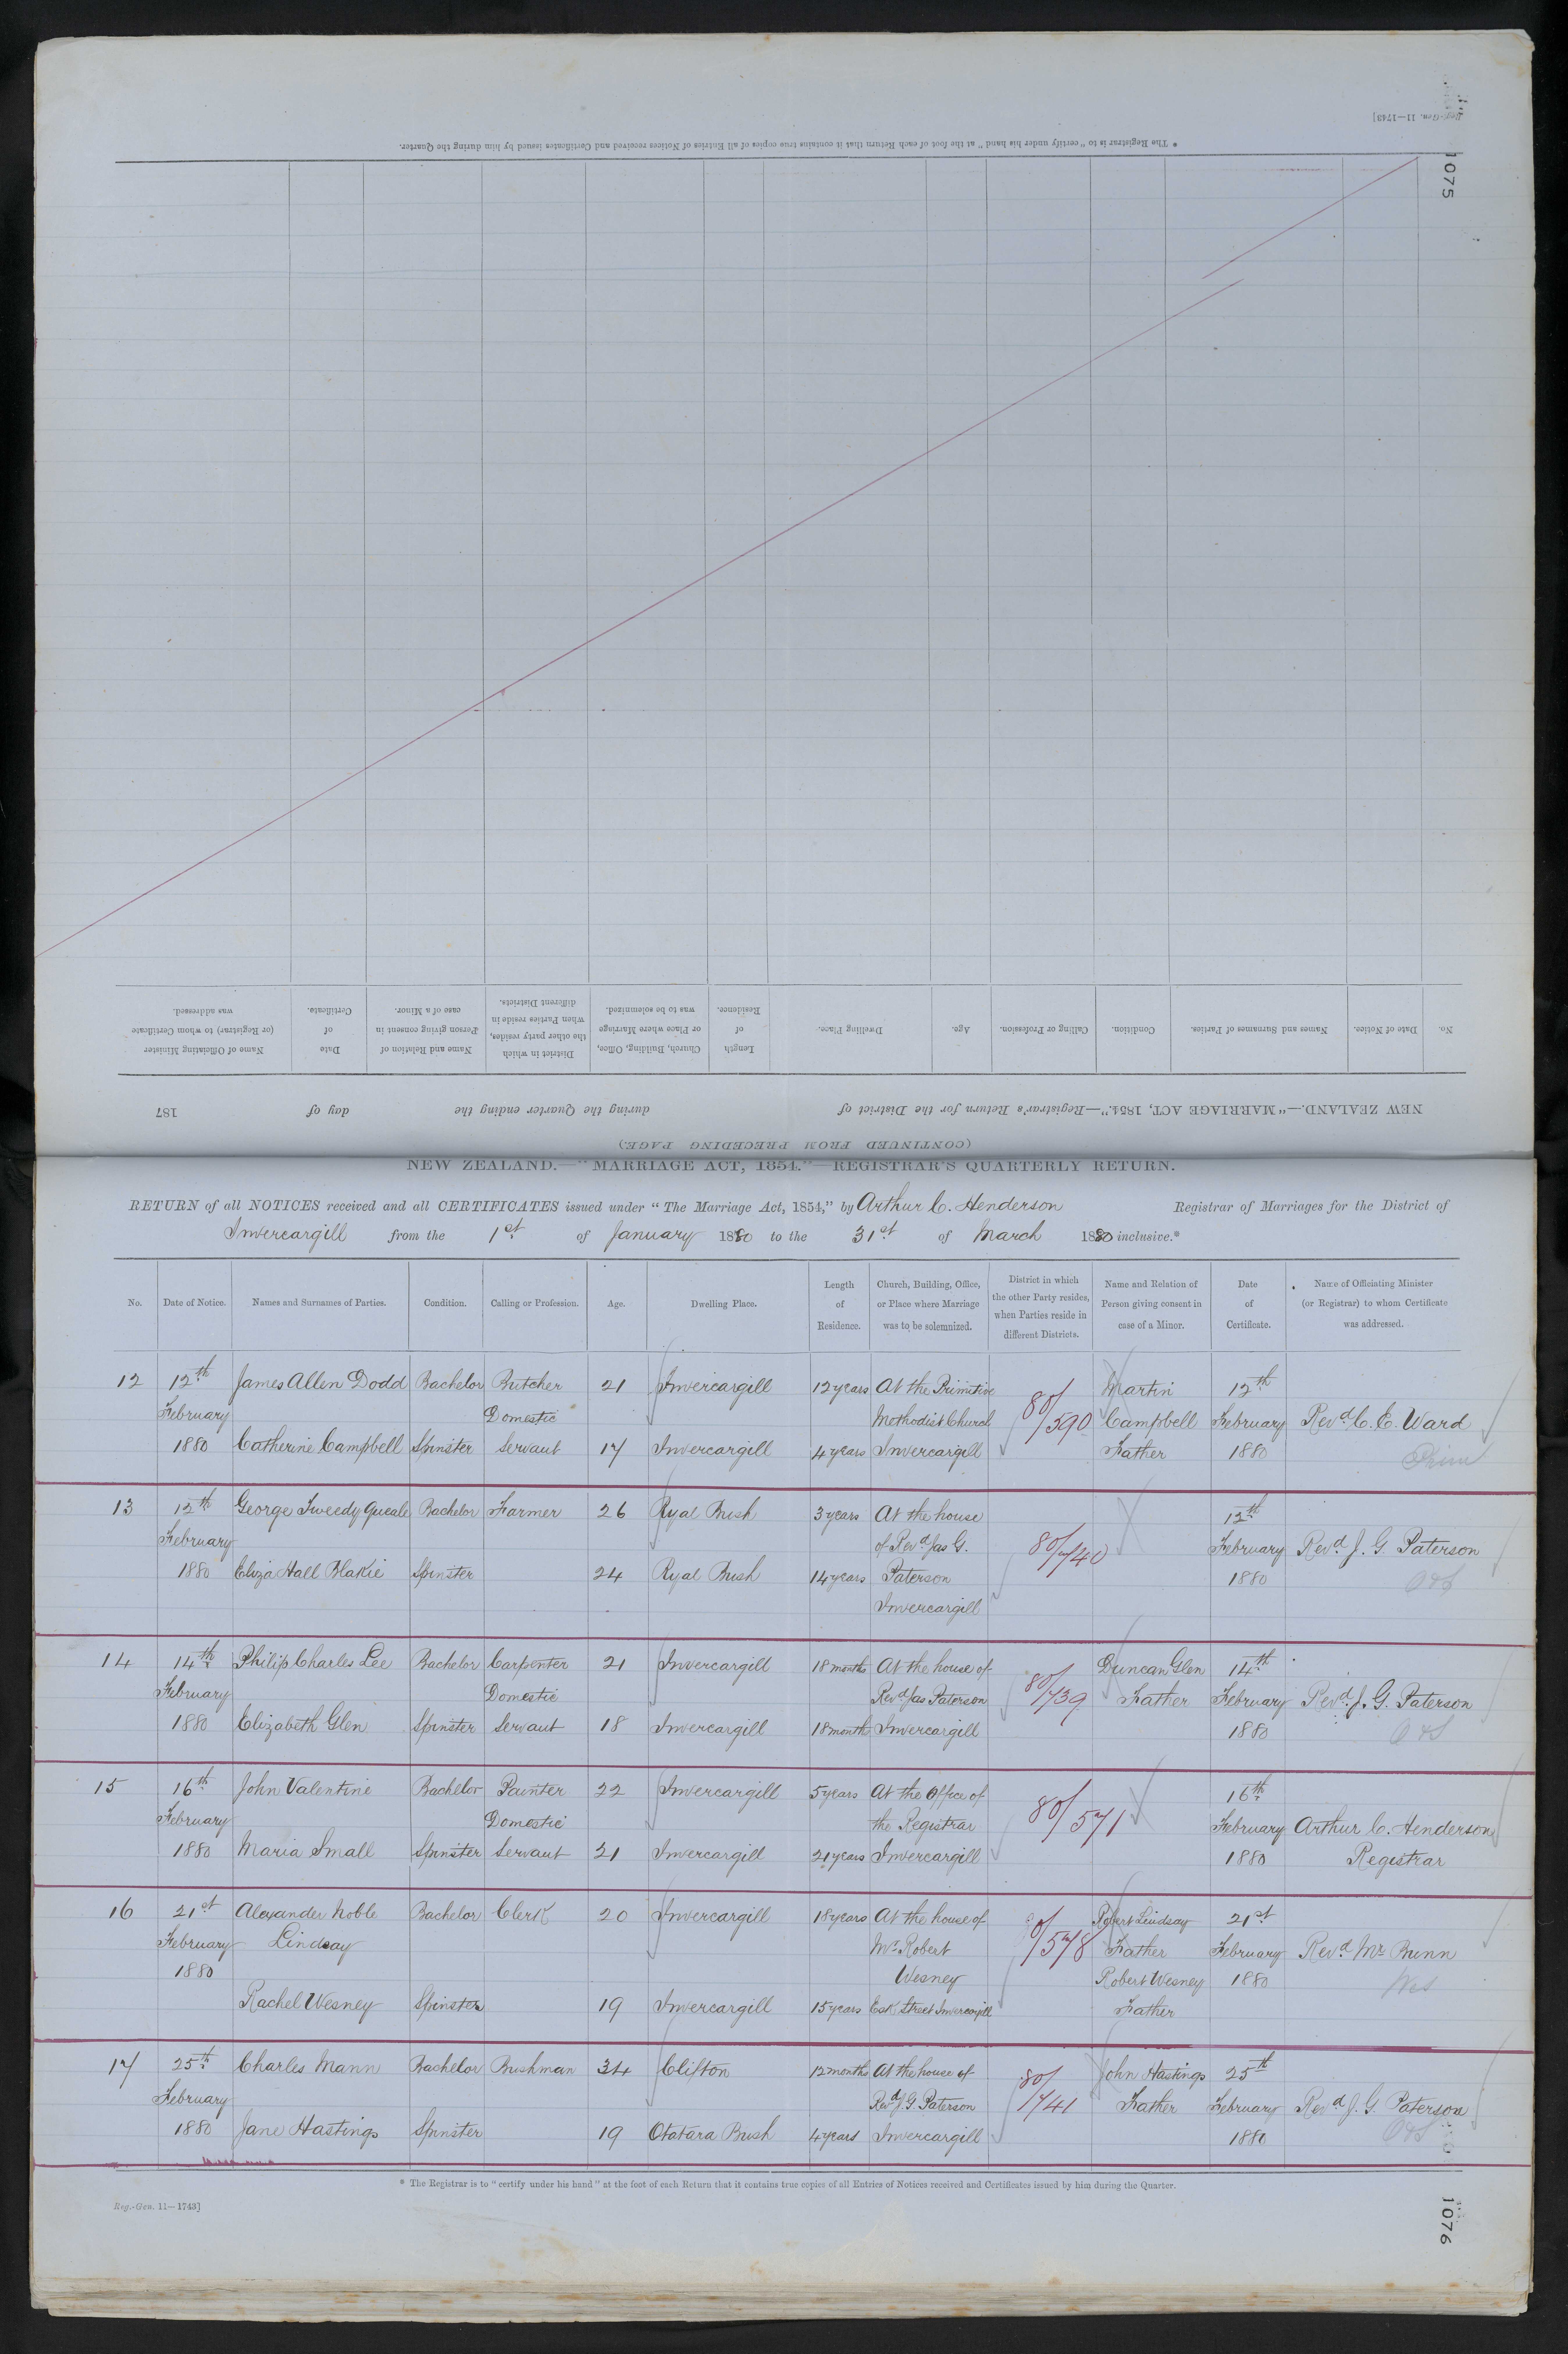 Reg.-Gen. 11—1743]
1075
* The Registrar is to "certify under his hand" at the foot of each Return that it contains true copies of all Entries of Notices received and Certificates issued by him during the Quarter.
(CONTINUED FROM PRECEDING PAGE.)
NEW ZEALAND.—"MARRIAGE ACT, 1854."—Registrar's Return for the District of during the Quarter ending the day of 187
No. Date of Notice. Names and Surnames of Parties. Condition. Calling or Profession. Age. Dwelling Place. Length of Residence. Church, Building, Office, or Place where Marriage was to be solemnized. District in which the other party resides, when Parties reside in different Districts. Name and Relation of Person giving consent in case of a Minor. Date of Certificate. Name of Officiating Minister (or Registrar) to whom Certificate was addressed.
NEW ZEALAND.—"MARRIAGE ACT, 1854."—REGISTRAR'S QUARTERLY RETURN.
RETURN of all NOTICES received and all CERTIFICATES issued under "The Marriage Act, 1854," by Arthur C. Henderson Registrar of Marriages for the District of
Invercargill from the 1st of January 1880 to the 31st of March 1880 inclusive.*
No. Date of Notice. Names and Surnames of Parties. Condition. Calling or Profession. Age. Dwelling Place. Length of Residence. Church, Building, Office, or Place where Marriage was to be solemnized. District in which the other Party resides, when Parties reside in different Districts. Name and Relation of Person giving consent in case of a Minor. Date of Certificate. Name of Officiating Minister (or Registrar) to whom Certificate was addressed.
12 12th James Allen Dodd Bachelor Butcher 21 Invercargill 12 years At the Primitive 80/590 Martin 12th
February Domestic Methodist Church Campbell February Revd C. E. Ward
1880 Catherine Campbell Spinster Servant 17 Invercargill 4 years Invercargill Father 1880 Prim
13 12th George Tweedy Queale Bachelor Farmer 26 Ryal Bush 3 years At the house 12th
February of Revd Jas G. 80/740 February Revd J. G. Paterson
1880 Eliza Hall Blakie Spinster 24 Ryal Bush 14 years Paterson 1880
Invercargill
14 14th Philip Charles Lee Bachelor Carpenter 21 Invercargill 18 months At the house of 80/739 Duncan Glen 14th
February Domestic Revd Jas Paterson Father February Revd J. G. Paterson
1880 Elizabeth Glen Spinster Servant 18 Invercargill 18 month Invercargill 1880
15 16th John Valentine Bachelor Painter 22 Invercargill 5 years At the Office of 80/571 16th
February Domestic the Registrar February Arthur C. Henderson
1880 Maria Small Spinster Servant 21 Invercargill 21 years Invercargill 1880 Registrar
16 21st Alexander Noble Bachelor Clerk 20 Invercargill 18 years At the house of 80/578 Robert Lindsay 21st
February Lindsay Mr Robert Father February Revd Mr Bunn
1880 Wesney Robert Wesney 1880 Wes
Rachel Wesney Spinster 19 Invercargill 15 years Esk Street Invercargill Father
17 25th Charles Mann Bachelor Bushman 34 Clifton 12 months At the house of 80/741 John Hastings 25th
February Revd J. G. Paterson Father February Revd J. G. Paterson
1880 Jane Hastings Spinster 19 Otatara Bush 4 years Invercargill 1880
* The Registrar is to "certify under his hand" at the foot of each Return that it contains true copies of all Entries of Notices received and Certificates issued by him during the Quarter.
Reg.-Gen. 11—1743]
1076